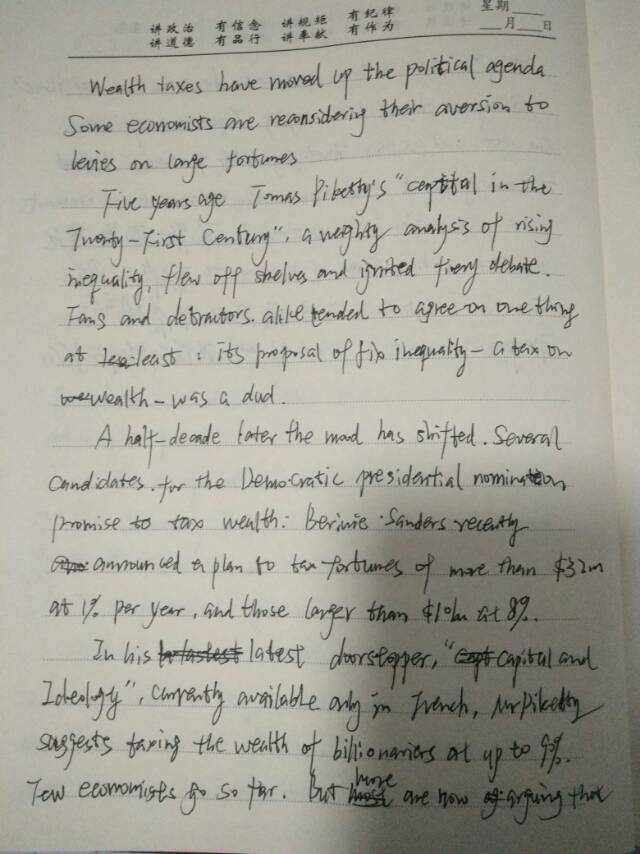 讲政治 有信念 讲规矩 有纪律
讲道德 有品行 讲奉献 有作为
星期
月 日
Wealth taxes have moved up the political agenda
Some economists are reconsidering their aversion to
levies on large fortunes
Five years age Tomas Piketty's "capital in the
Twenty-First Century", a weighty analysis of rising
inequality, flew off shelves and ignited fiery debate.
Fans and detractors. alike tended to agree on one thing
at least: its proposal of fix inequality - a tax on
wealth - was a dud.
A half-decade later the mood has shifted. Several
candidates. for the Democratic presidential nomination
promise to tax wealth: Bernie Sanders recently
announced a plan to tax fortunes of more than $32m
at 1% per year, and those larger than $10bn at 8%.
In his latest doorstopper, "Capital and
Ideology", currently available only in French, Mr Piketty
suggests taxing the wealth of billionariers at up to 90%.
Few economists go so far. But more are now arguing that